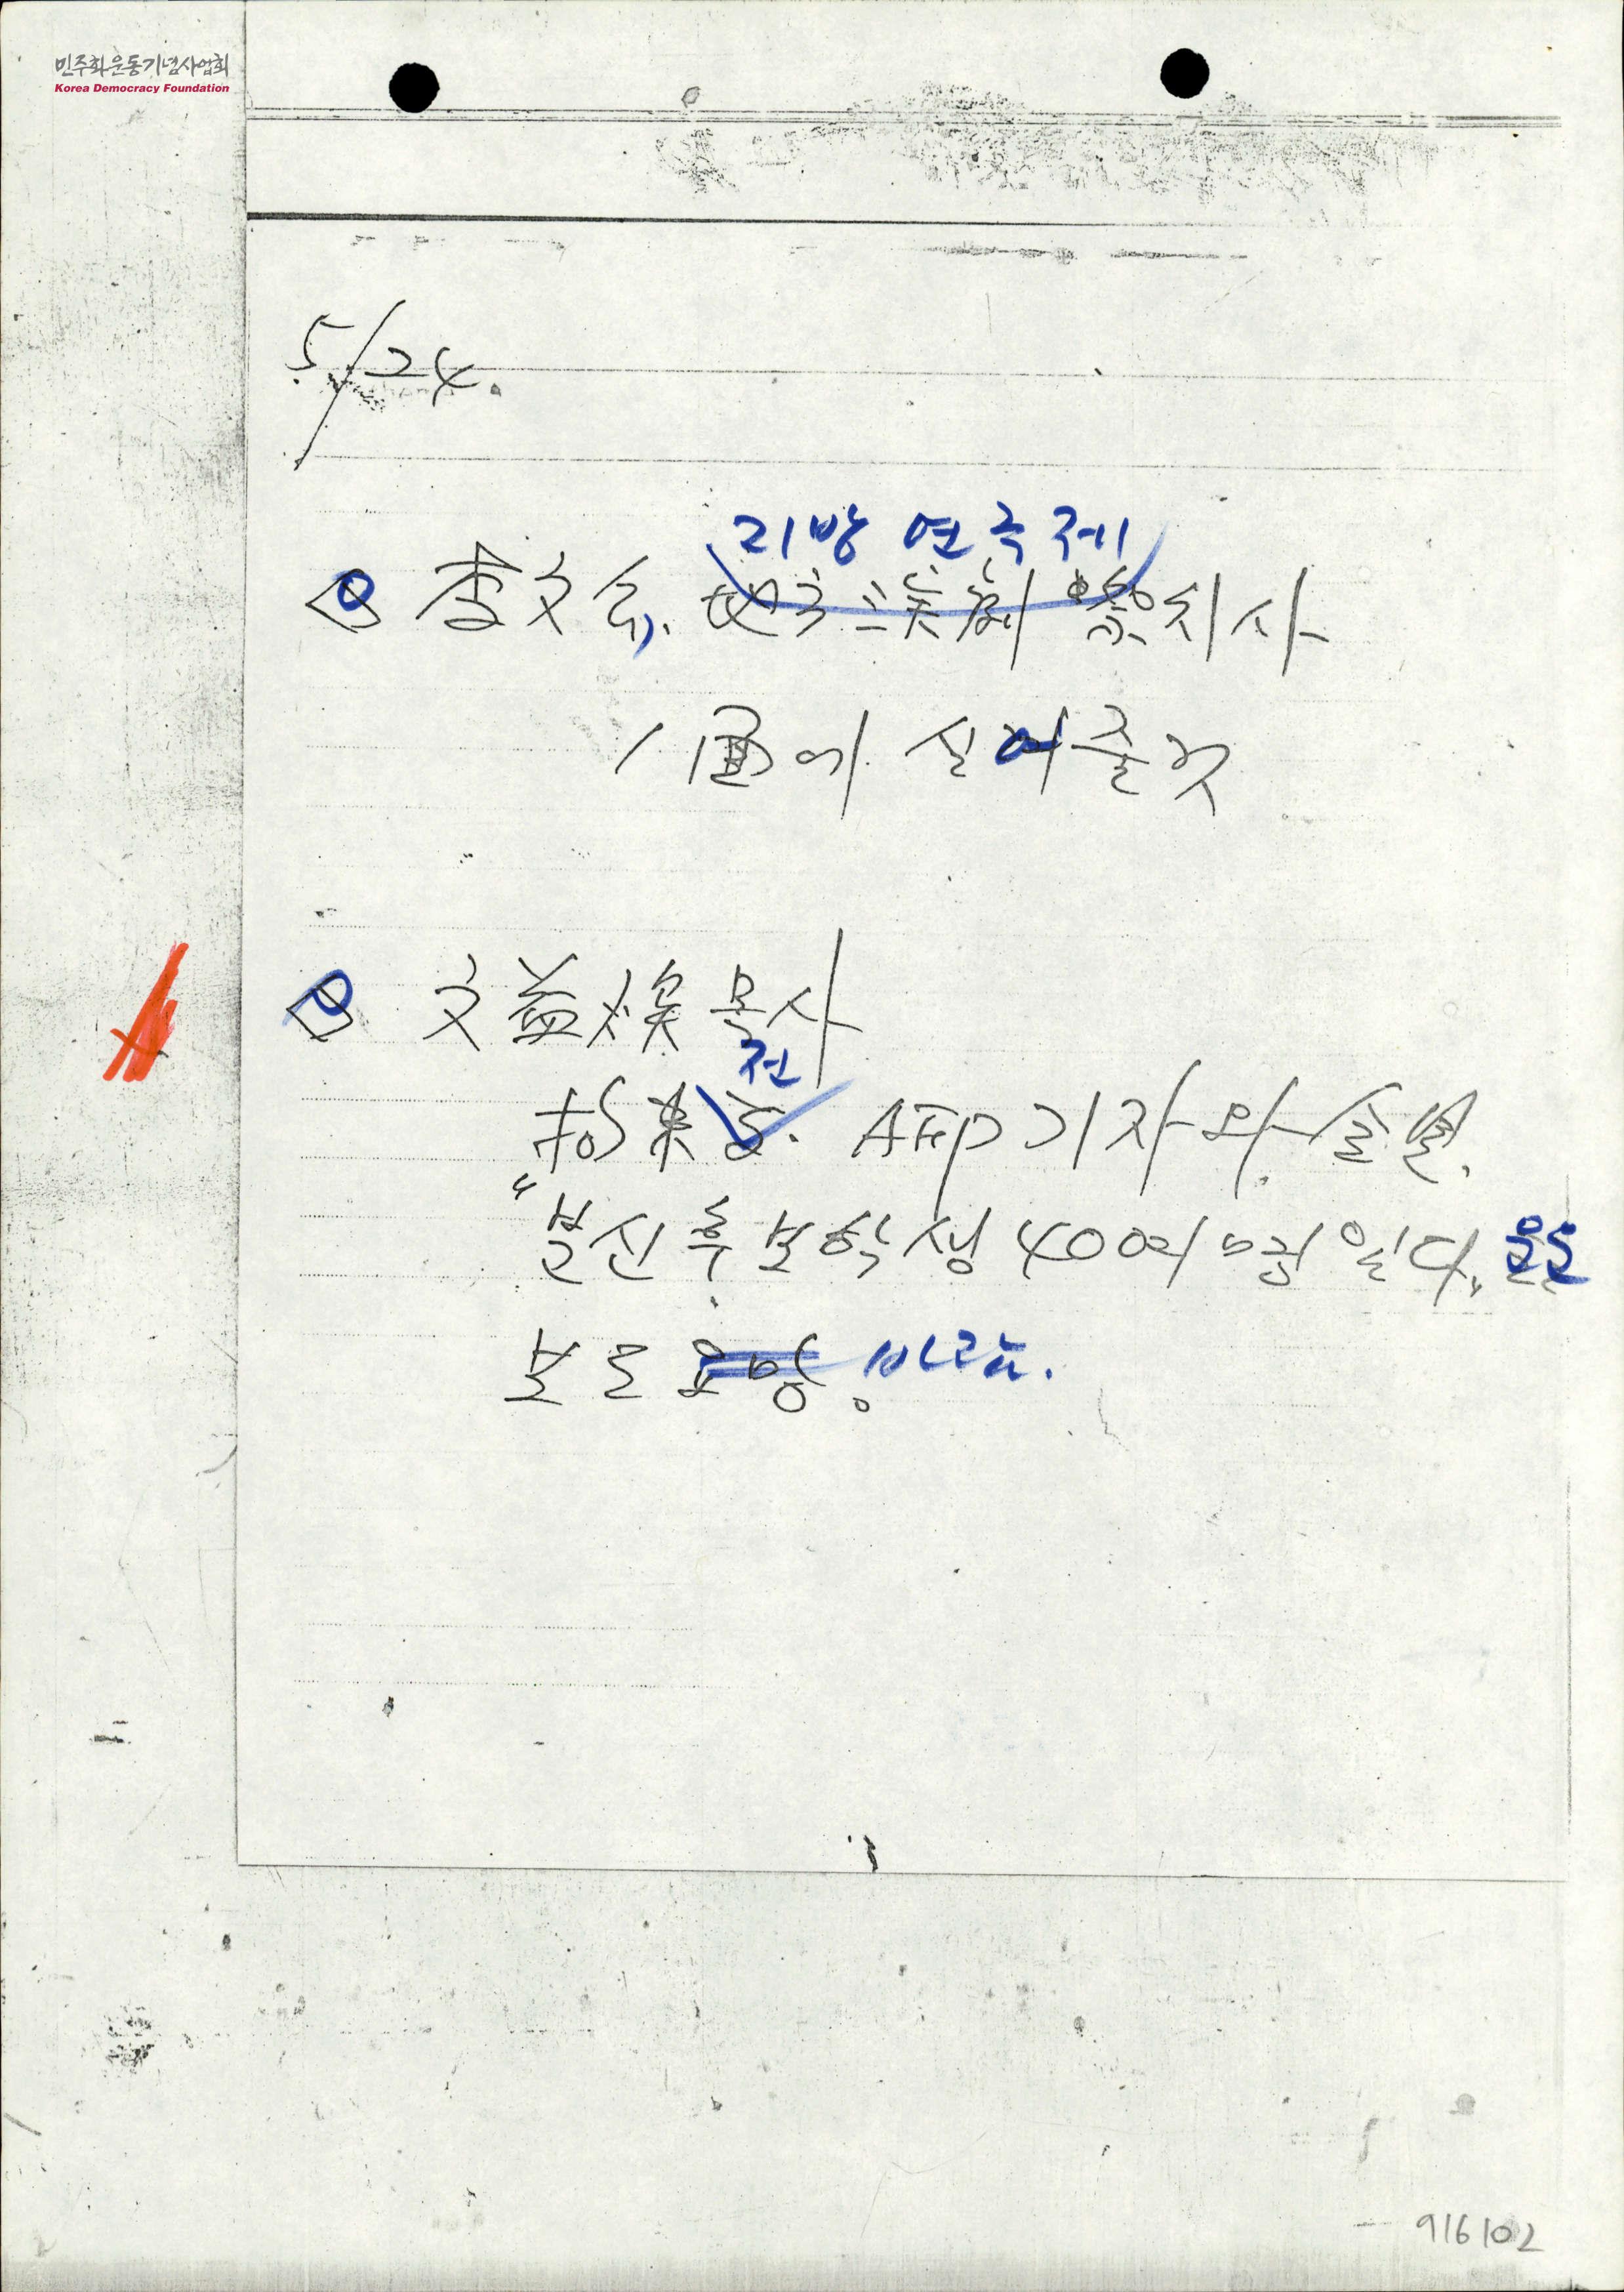 민주화운동기념사업회
Korea Democracy Foundation
5/24.
지방 연극제
李文公, 地方演劇祭 치사
1面에 실어줄 것
文益煥 목사
전
拘束 AFP기자와
"분신 후보 학생 40여 명 있다."
보도 요망. 바람.
916102